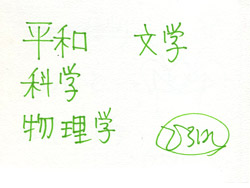 平和 文学
科学
物理学